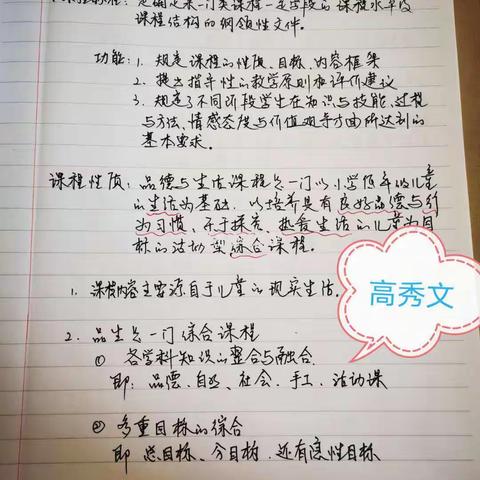 课程标准：是确定某一门类课程一定学段的课程水平及
课程结构的纲领性文件。
功能：1. 规定课程的性质、目标、内容框架
2. 提出指导性的教学原则和评价建议
3. 规定了不同阶段学生在知识与技能、过程
与方法、情感态度与价值观等方面所达到的
基本要求。
课程性质：品德与生活课程是一门以小学低年级儿童
的生活为基础，以培养具有良好品德与行
为习惯、乐于探究、热爱生活的儿童为目
标的活动型综合课程。
1. 课程内容主要源自于儿童的现实生活。
高秀文
2. 品生是一门综合课程
① 各学科知识的整合与融合
即：品德、自然、社会、手工、活动课
② 多重目标的综合
即 总目标、分目标，还有隐性目标